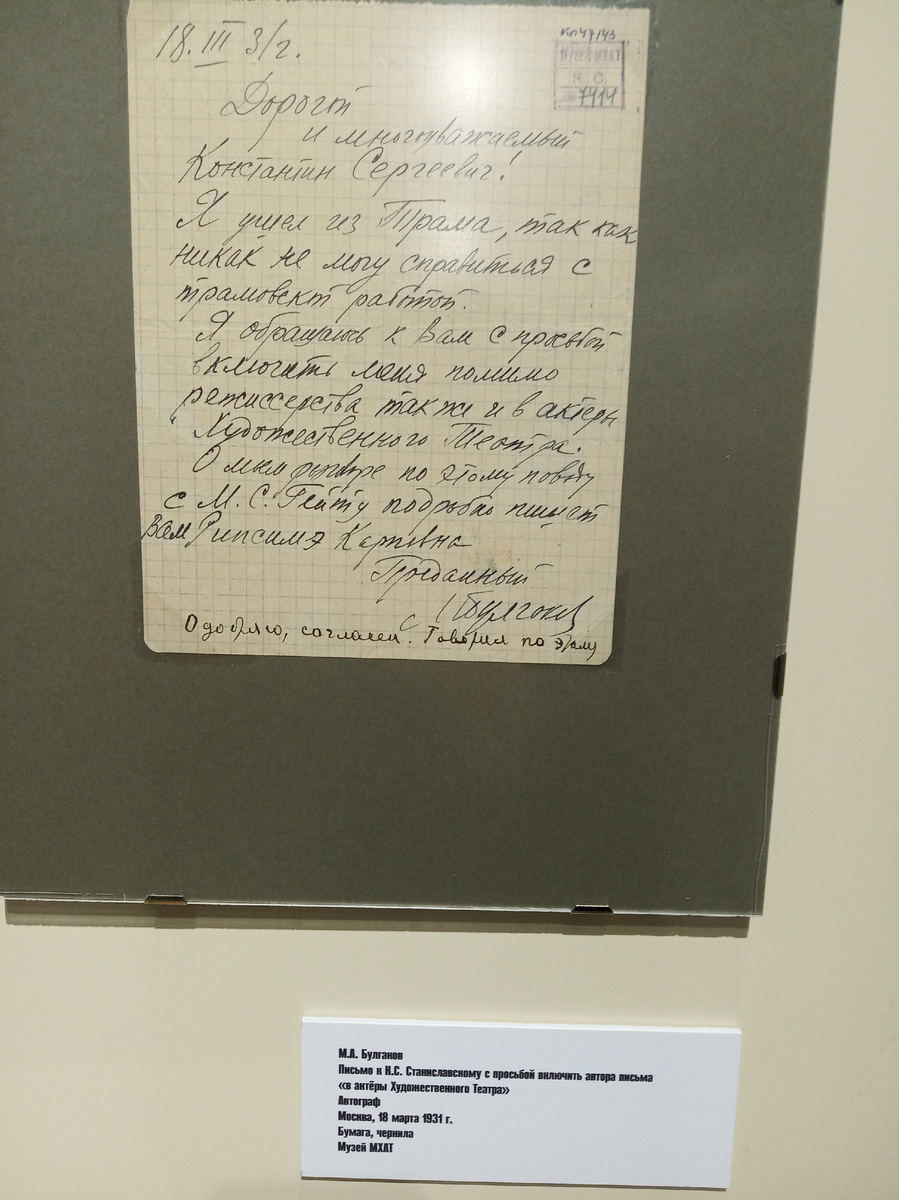 18. III 31 г.
КП 47143
МУЗЕЙ МХАТ
К. С.
№ 7414
Дорогой
и многоуважаемый
Константин Сергеевич!
Я ушел из Трама, так как
никак не могу справиться с
трамовской работой.
Я обращаюсь к Вам с просьбой
включить меня помимо
режиссерства также и в актеры
Художественного Театра.
О моем по этому поводу
с М. С. Гейтц подробно пишет
Вам Рипсимэ Карповна
Преданный
М Булгаков
Одобряю, согласен. Говорил по этому
М.А. Булгаков
Письмо к К.С. Станиславскому с просьбой включить автора письма
«в актёры Художественного Театра»
Автограф
Москва, 18 марта 1931 г.
Бумага, чернила
Музей МХАТ